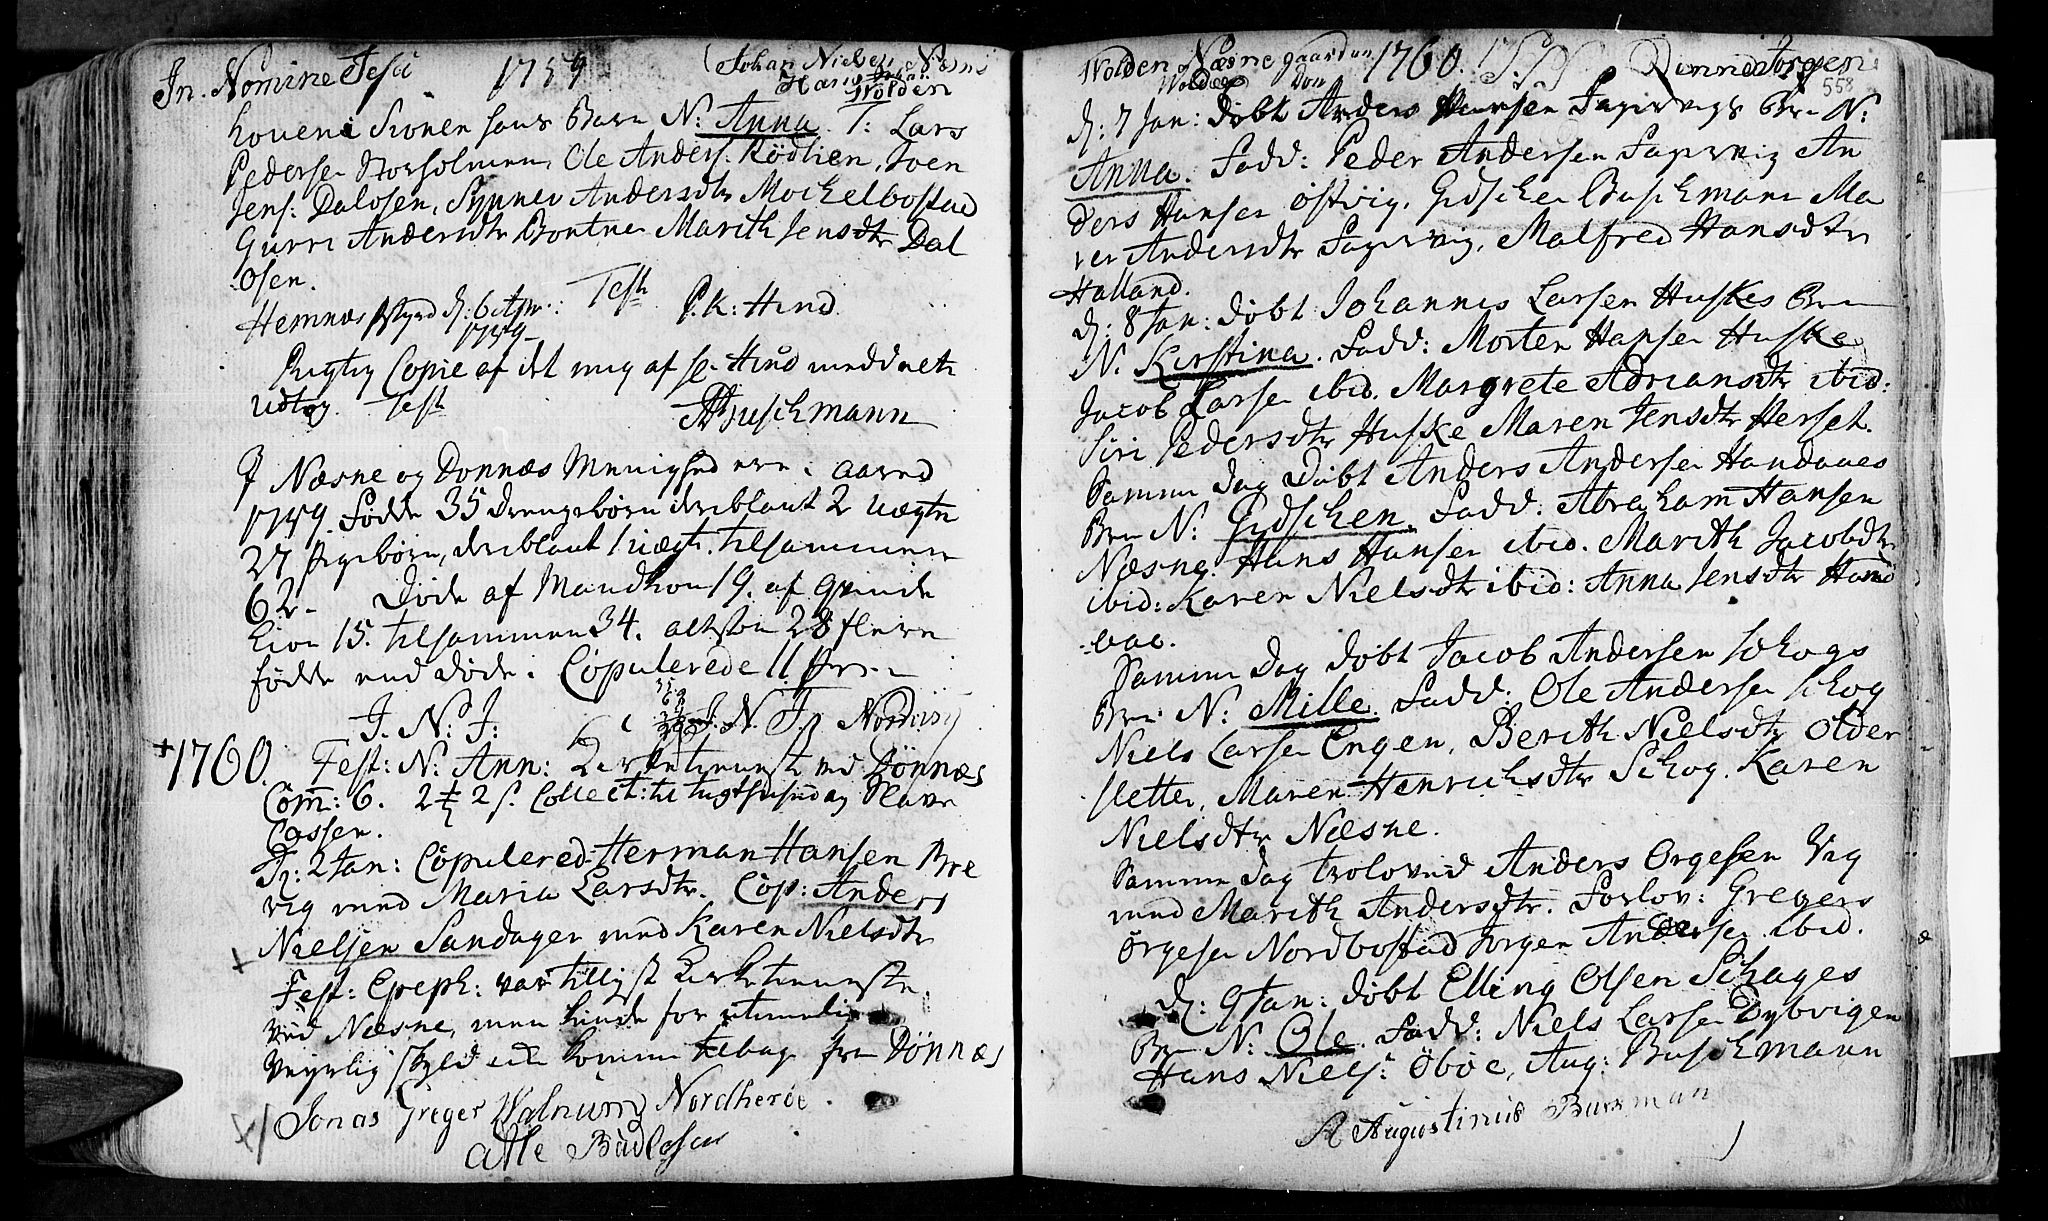 In Nomine Jesu 1759 (Johan Nielsen Næsne
Hans Wolden
Sønen hans Barn N: Anna. T: Lars
Pedersen Storholmen, Ole Anders: Rödlien, Iven
Jens: Dalosen, Synnev Andersdtr Mochelbostad
Gurri Andersdtr Bontne Marith Jensdtr Dal
osen.
Hemnæs d: 6 1759 Test P.k: Hind
Rigtig Copie af det mig af Hr Hind meddeelte
Udtog Test ABuschmann
I Næsne og Dönnæs Menighed ere i aaret
1759. Födde 35 drengebörn deriblant 2 uægte
27 pigebörn, deriblant 1 uægte. tilsammen
62- Döde af Mandkön 19. af qvinde
kiön 15. tilsammen 34. altsaa 28 flere
födde end döde. Copulerede 11 par
J. N: J: J. N. J. Nordvig
+1760. Fest: N: Ann: Kirketieneste ved Dönnæs
Com: 6. 2 2 s. Collect: til tugthuset og Slave
Cassen.
D: 2 Jan: Copulered Herman Hansen Bre
vig med Maria Larsdtr. Cop: Anders
Nielsen Sandager med Karen Nielsdtr
+ Fest: Epeph: var tillyst Kirketieneste
ved Næsne, men kunde for ustuimelig
Veyrlig skyld ei komme tilbage fra Dönnæs
x/ Jonas Greger Walnum Nordherøe.
Atle Budlosen
Wolden Næsne gaarden 1760. Dönnes Jorgen
Wolden Don 558
d: 7 Jan: döbt Anders Hansen Fagervigs Brn N:
Anna. Fadd: Peder Andersen Fagervig An
ders Hansen Östvig, Gidschen Buschmann Ma
ren Andersdtr Fagervig, Malfred Hansdtr
Halland.
d: 8 Jan: döbt Johannes Larsen Huskes Brn
N. Kirstina. Fadd: Morten Hansen Huske
Jacob Larsen ibid. Margrete Adriansdtr ibid:
Siri Pedersdtr Huske Maren Jensdtr Herset.
Samme dag Döbt Anders Andersen Handaaes
Brn N: Gidschen. Fadd: Abraham Hansen
Næsne. Hans Hansen ibid. Marith Jacobdtr
ibid: Karen Nielsdtr ibid: Anna Jensdtr Hand
aae.
Samme dag döbt Jacob Andersen Schogs
Brn N: Mille. Fadd: Ole Andersen Schog
Niels Larsen Engen, Berith Nielsdtr Older
sletter, Maren Henrichsdtr Schog. Karen
Nielsdtr Næsne.
Samme dag troloved Anders Örgesen Vig
med Marith Andersdtr. Forlov: Gregers
Örgesen Nordbostad Jorgen Andersen ibid.
d: 9 Jan: döbt Elling Olsen Schages
Brn N: Ole. Fadd: Niels Larsen Dybvigen
Hans Niels: Öböe, Aug: Buschmann
A Augustinus Busman